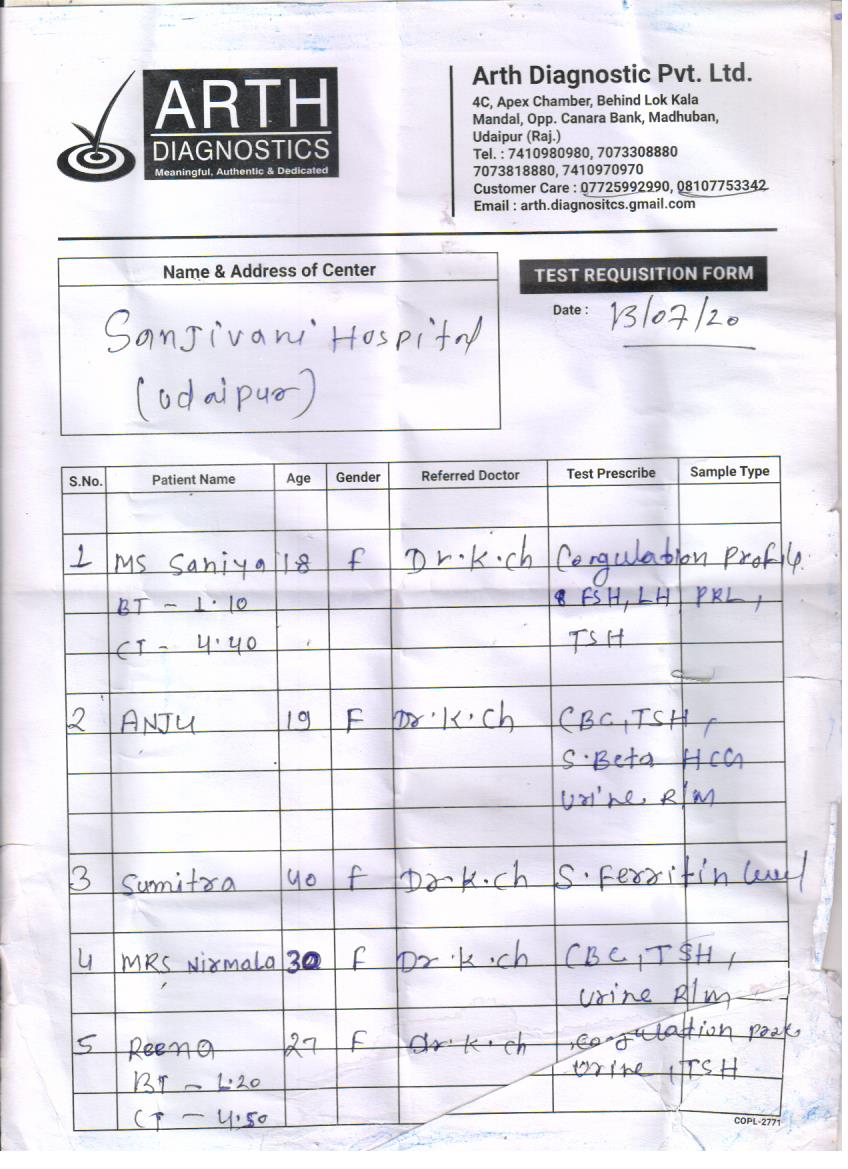 ARTH
DIAGNOSTICS
Meaningful, Authentic & Dedicated
Arth Diagnostic Pvt. Ltd.
4C, Apex Chamber, Behind Lok Kala
Mandal, Opp. Canara Bank, Madhuban,
Udaipur (Raj.)
Tel. : 7410980980, 7073308880
7073818880, 7410970970
Customer Care : 07725992990, 08107753342
Email : arth.diagnositcs.gmail.com
Name & Address of Center
Sanjivani Hospital
(Udaipur)
TEST REQUISITION FORM
Date : 13/07/20
S.No. Patient Name Age Gender Referred Doctor Test Prescribe Sample Type
1 MS Saniya 18 F Dr.K.ch Corgulation Profile
BT - 1.10 FSH, LH, PRL,
CT - 4.40 TSH
2 ANJU 19 F Dr.K.Ch CBC, TSH,
S.Beta HCG
Urine R/M
3 Sumitra 40 F Dr.K.ch S.Ferritin level
4 MRS Nirmala 30 F Dr.K.ch CBC, TSH,
Urine R/m
5 Reena 27 F Dr.K.ch Corgulation
BT - 1.20 Urine, TSH
CT - 4.50
COPL-2771